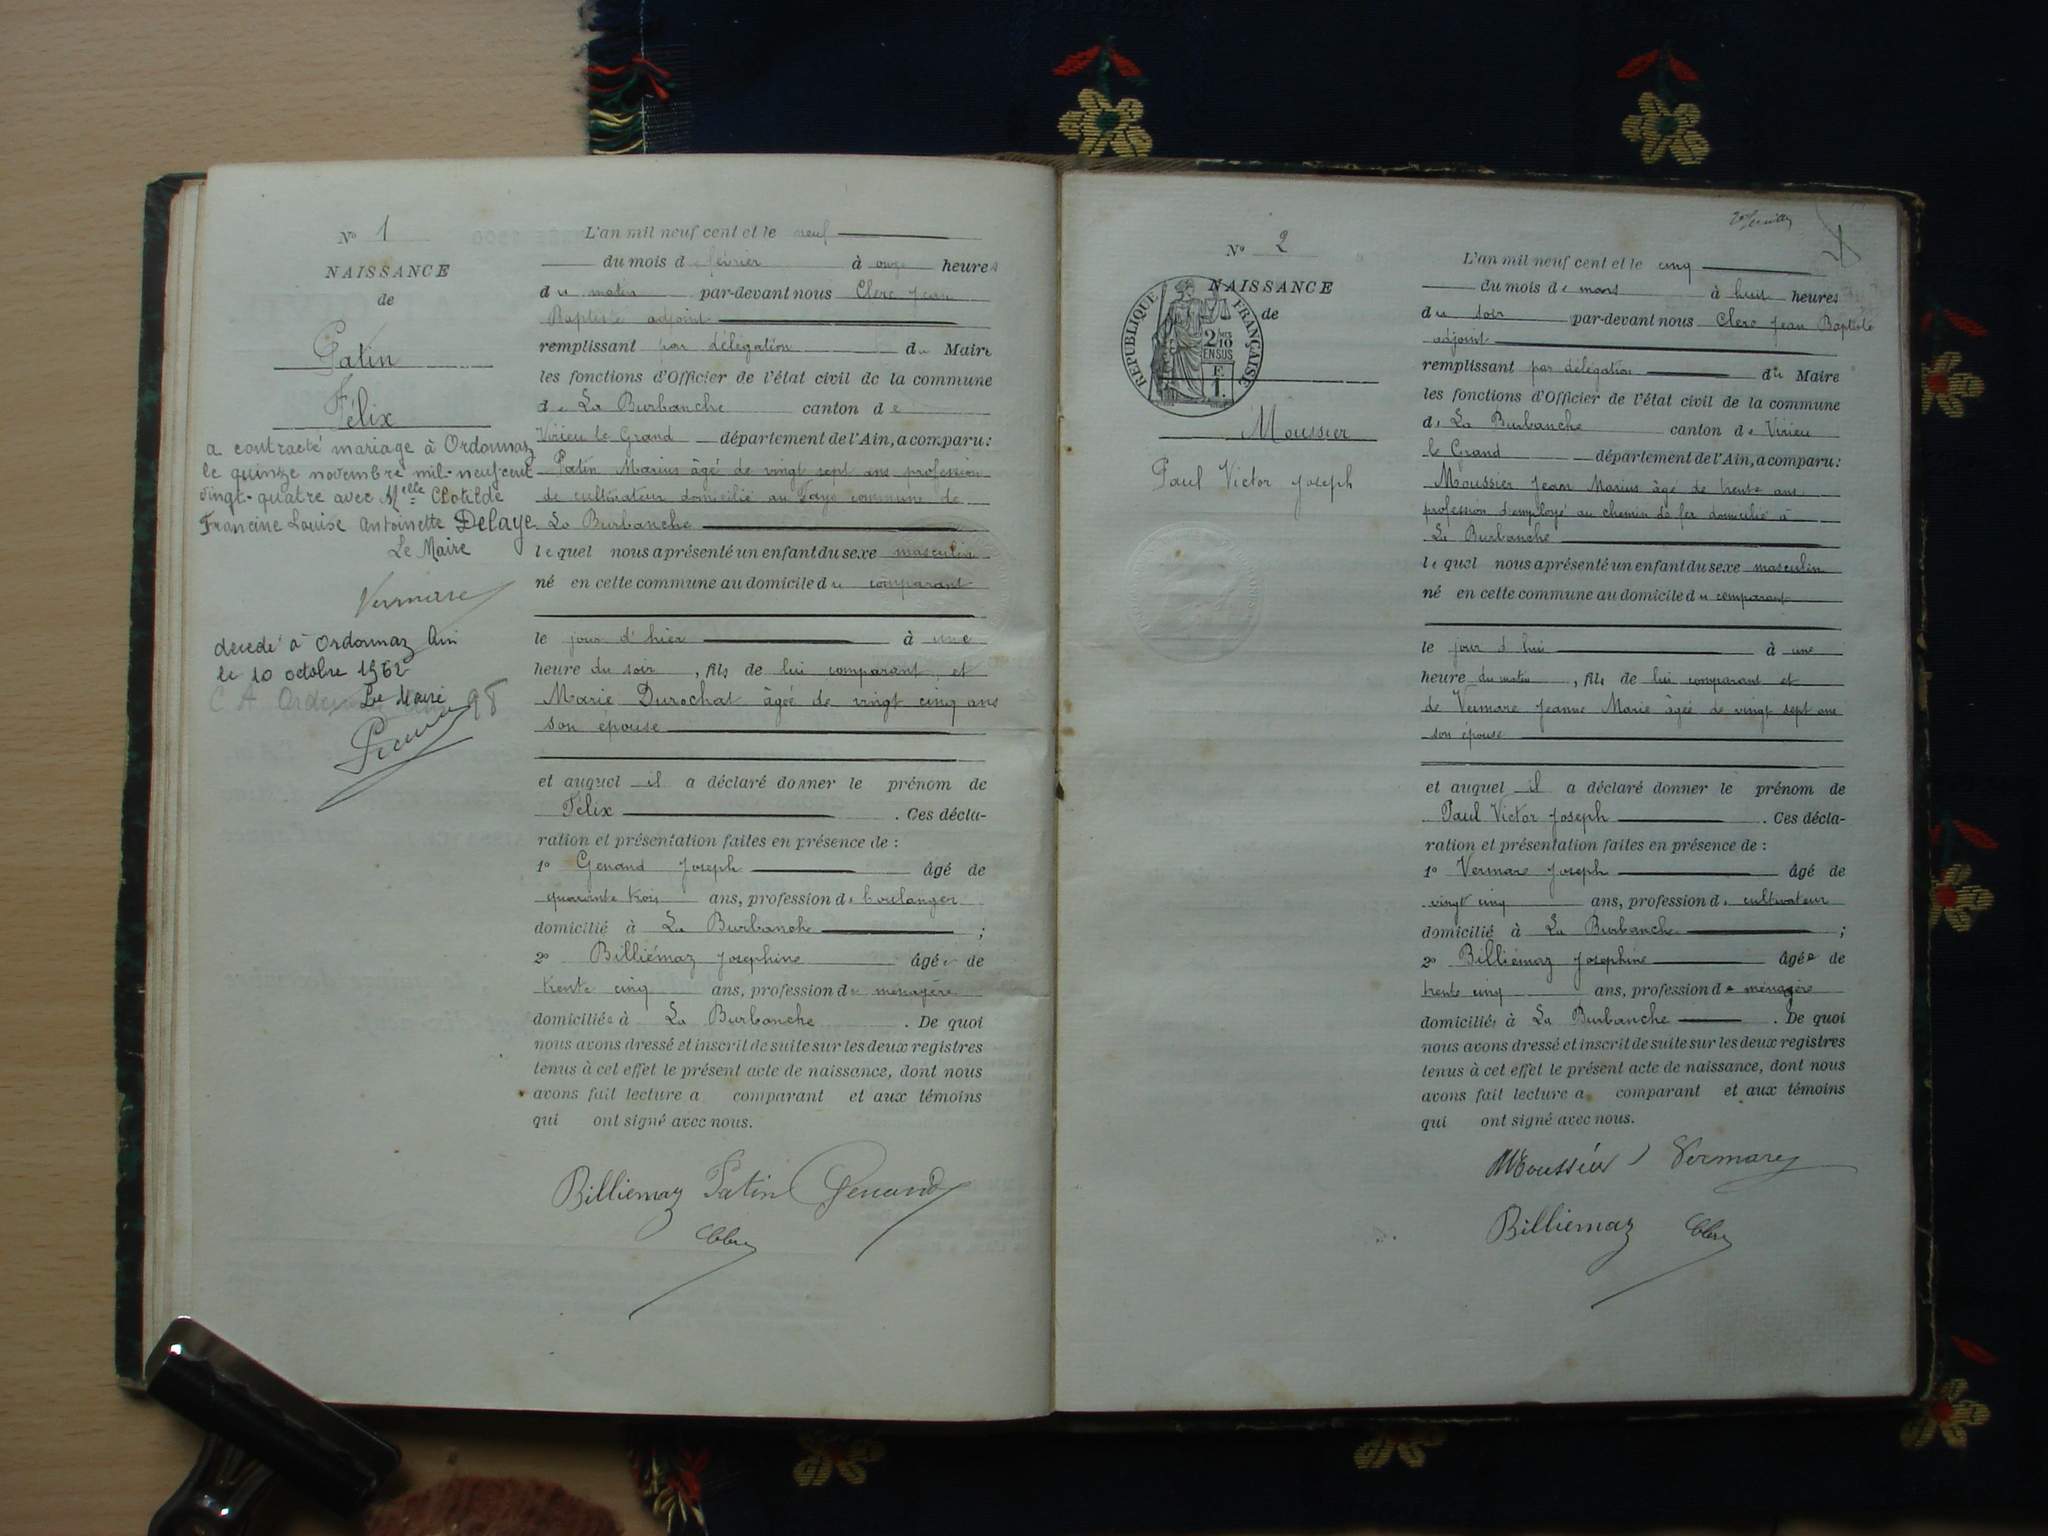 Nº 1
NAISSANCE
de
Patin
Félix
a contracté mariage à Ordonnaz
le quinze novembre mil-neuf-cent
vingt-quatre avec Melle Clotilde
Francine Louise Antoinette Delaye
Le Maire
Vermare
décédé à Ordonnaz Ain
le 10 octobre 1962
Le Maire
L'an mil neuf cent et le neuf
du mois de février à onze heures
du matin par-devant nous Clerc Jean
Baptiste adjoint
remplissant par délégation du Maire
les fonctions d'Officier de l'état civil de la commune
de La Burbanche canton de
Virieu le Grand département de l'Ain, a comparu:
Patin Marius âgé de vingt sept ans profession
de cultivateur domicilié au commune de
La Burbanche
lequel nous a présenté un enfant du sexe masculin
né en cette commune au domicile du comparant
le jour d'hier à une
heure du soir, fils de lui comparant et
Marie Durochat âgée de vingt cinq ans
son épouse
et auquel il a déclaré donner le prénom de
Félix. Ces décla-
ration et présentation faites en présence de :
1º Genand Joseph âgé de
quarante trois ans, profession de boulanger
domicilié à La Burbanche ;
2º Billiémaz Josephine âgée de
trente cinq ans, profession de ménagère
domiciliée à La Burbanche. De quoi
nous avons dressé et inscrit de suite sur les deux registres
tenus à cet effet le présent acte de naissance, dont nous
avons fait lecture a comparant et aux témoins
qui ont signé avec nous.
Billiemaz Patin Genand
Clerc
Nº 2
NAISSANCE
de
RÉPUBLIQUE FRANÇAISE
2/10
EN SUS
1.
Moussier
Paul Victor Joseph
L'an mil neuf cent et le cinq
du mois de mars à huit heures
du soir par-devant nous Clerc Jean Baptiste
adjoint
remplissant par délégation du Maire
les fonctions d'Officier de l'état civil de la commune
de La Burbanche canton de Virieu
le Grand département de l'Ain, a comparu:
Moussier Jean Marius âgé de trente ans
profession d'employé au chemin de fer domicilié à
La Burbanche
lequel nous a présenté un enfant du sexe masculin
né en cette commune au domicile du comparant
le jour d'hui à une
heure du matin, fils de lui comparant et
de Vermare Jeanne Marie âgée de vingt sept ans
son épouse
et auquel il a déclaré donner le prénom de
Paul Victor Joseph. Ces décla-
ration et présentation faites en présence de :
1º Vermare Joseph âgé de
vingt cinq ans, profession de cultivateur
domicilié à La Burbanche ;
2º Billiémaz Josephine âgée de
trente cinq ans, profession de ménagère
domiciliée à La Burbanche. De quoi
nous avons dressé et inscrit de suite sur les deux registres
tenus à cet effet le présent acte de naissance, dont nous
avons fait lecture a comparant et aux témoins
qui ont signé avec nous.
Moussier J Vermare
Billiemaz Clerc